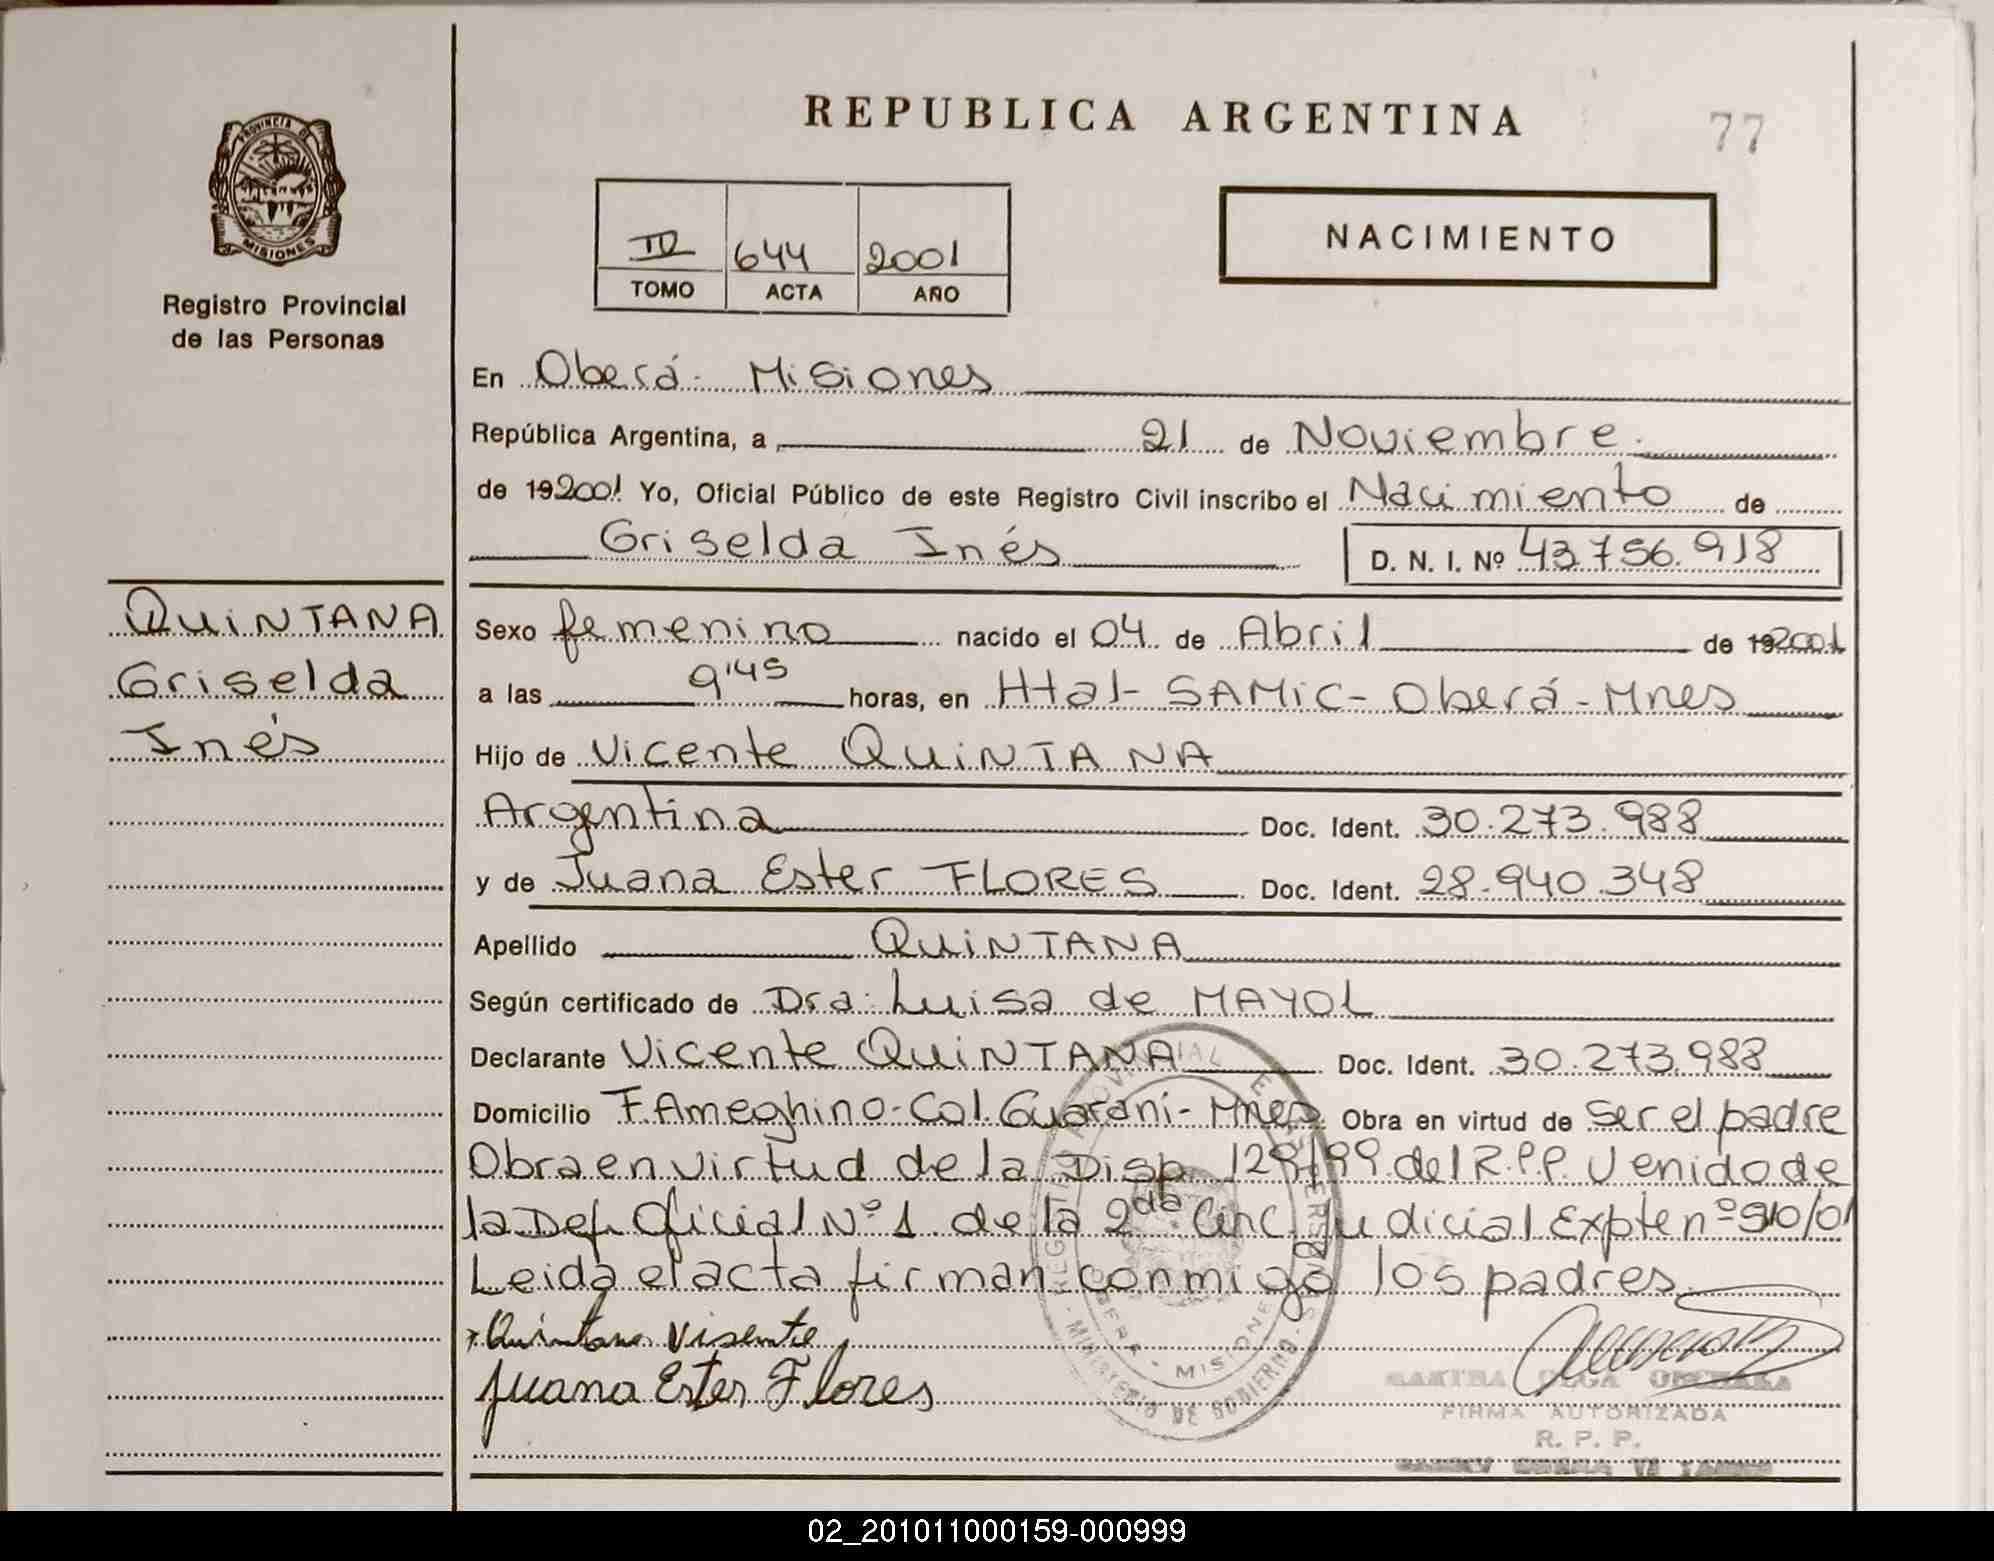 REPUBLICA ARGENTINA
77
PROVINCIA DE
MISIONES
Registro Provincial
de las Personas
644 2001
TOMO ACTA AÑO
NACIMIENTO
En Oberá - Misiones
República Argentina, a 21 de Noviembre.
de 192001. Yo, Oficial Público de este Registro Civil inscribo el Nacimiento de
Griselda Inés D. N. I. Nº 43.756.918
QUINTANA
Griselda
Inés
Sexo femenino nacido el 04 de Abril de 192001
a las 9'45 horas, en Htal - SAMIC - Oberá - Mnes
Hijo de Vicente QUINTANA
Argentina Doc. Ident. 30.273.988
y de Juana Ester FLORES Doc. Ident. 28.940.348
Apellido QUINTANA
Según certificado de Dra: Luisa de MAYOL
Declarante Vicente QUINTANA Doc. Ident. 30.273.988
Domicilio F. Ameghino - Col. Guaraní - Mnes Obra en virtud de ser el padre
Obra en virtud de la Disp. 128/99 del R.P.P. Venido de
la Def. Oficial Nº 1 de la 2da Circ. Judicial Expte nº 910/01
Leida el acta firman conmigo los padres
Quintana Visente
Juana Ester Flores
REGISTRO PROVINCIAL
OBERA - MISIONES
MINISTERIO DE GOBIERNO
MARTHA OLGA
FIRMA AUTORIZADA
R. P. P.
02_201011000159-000999